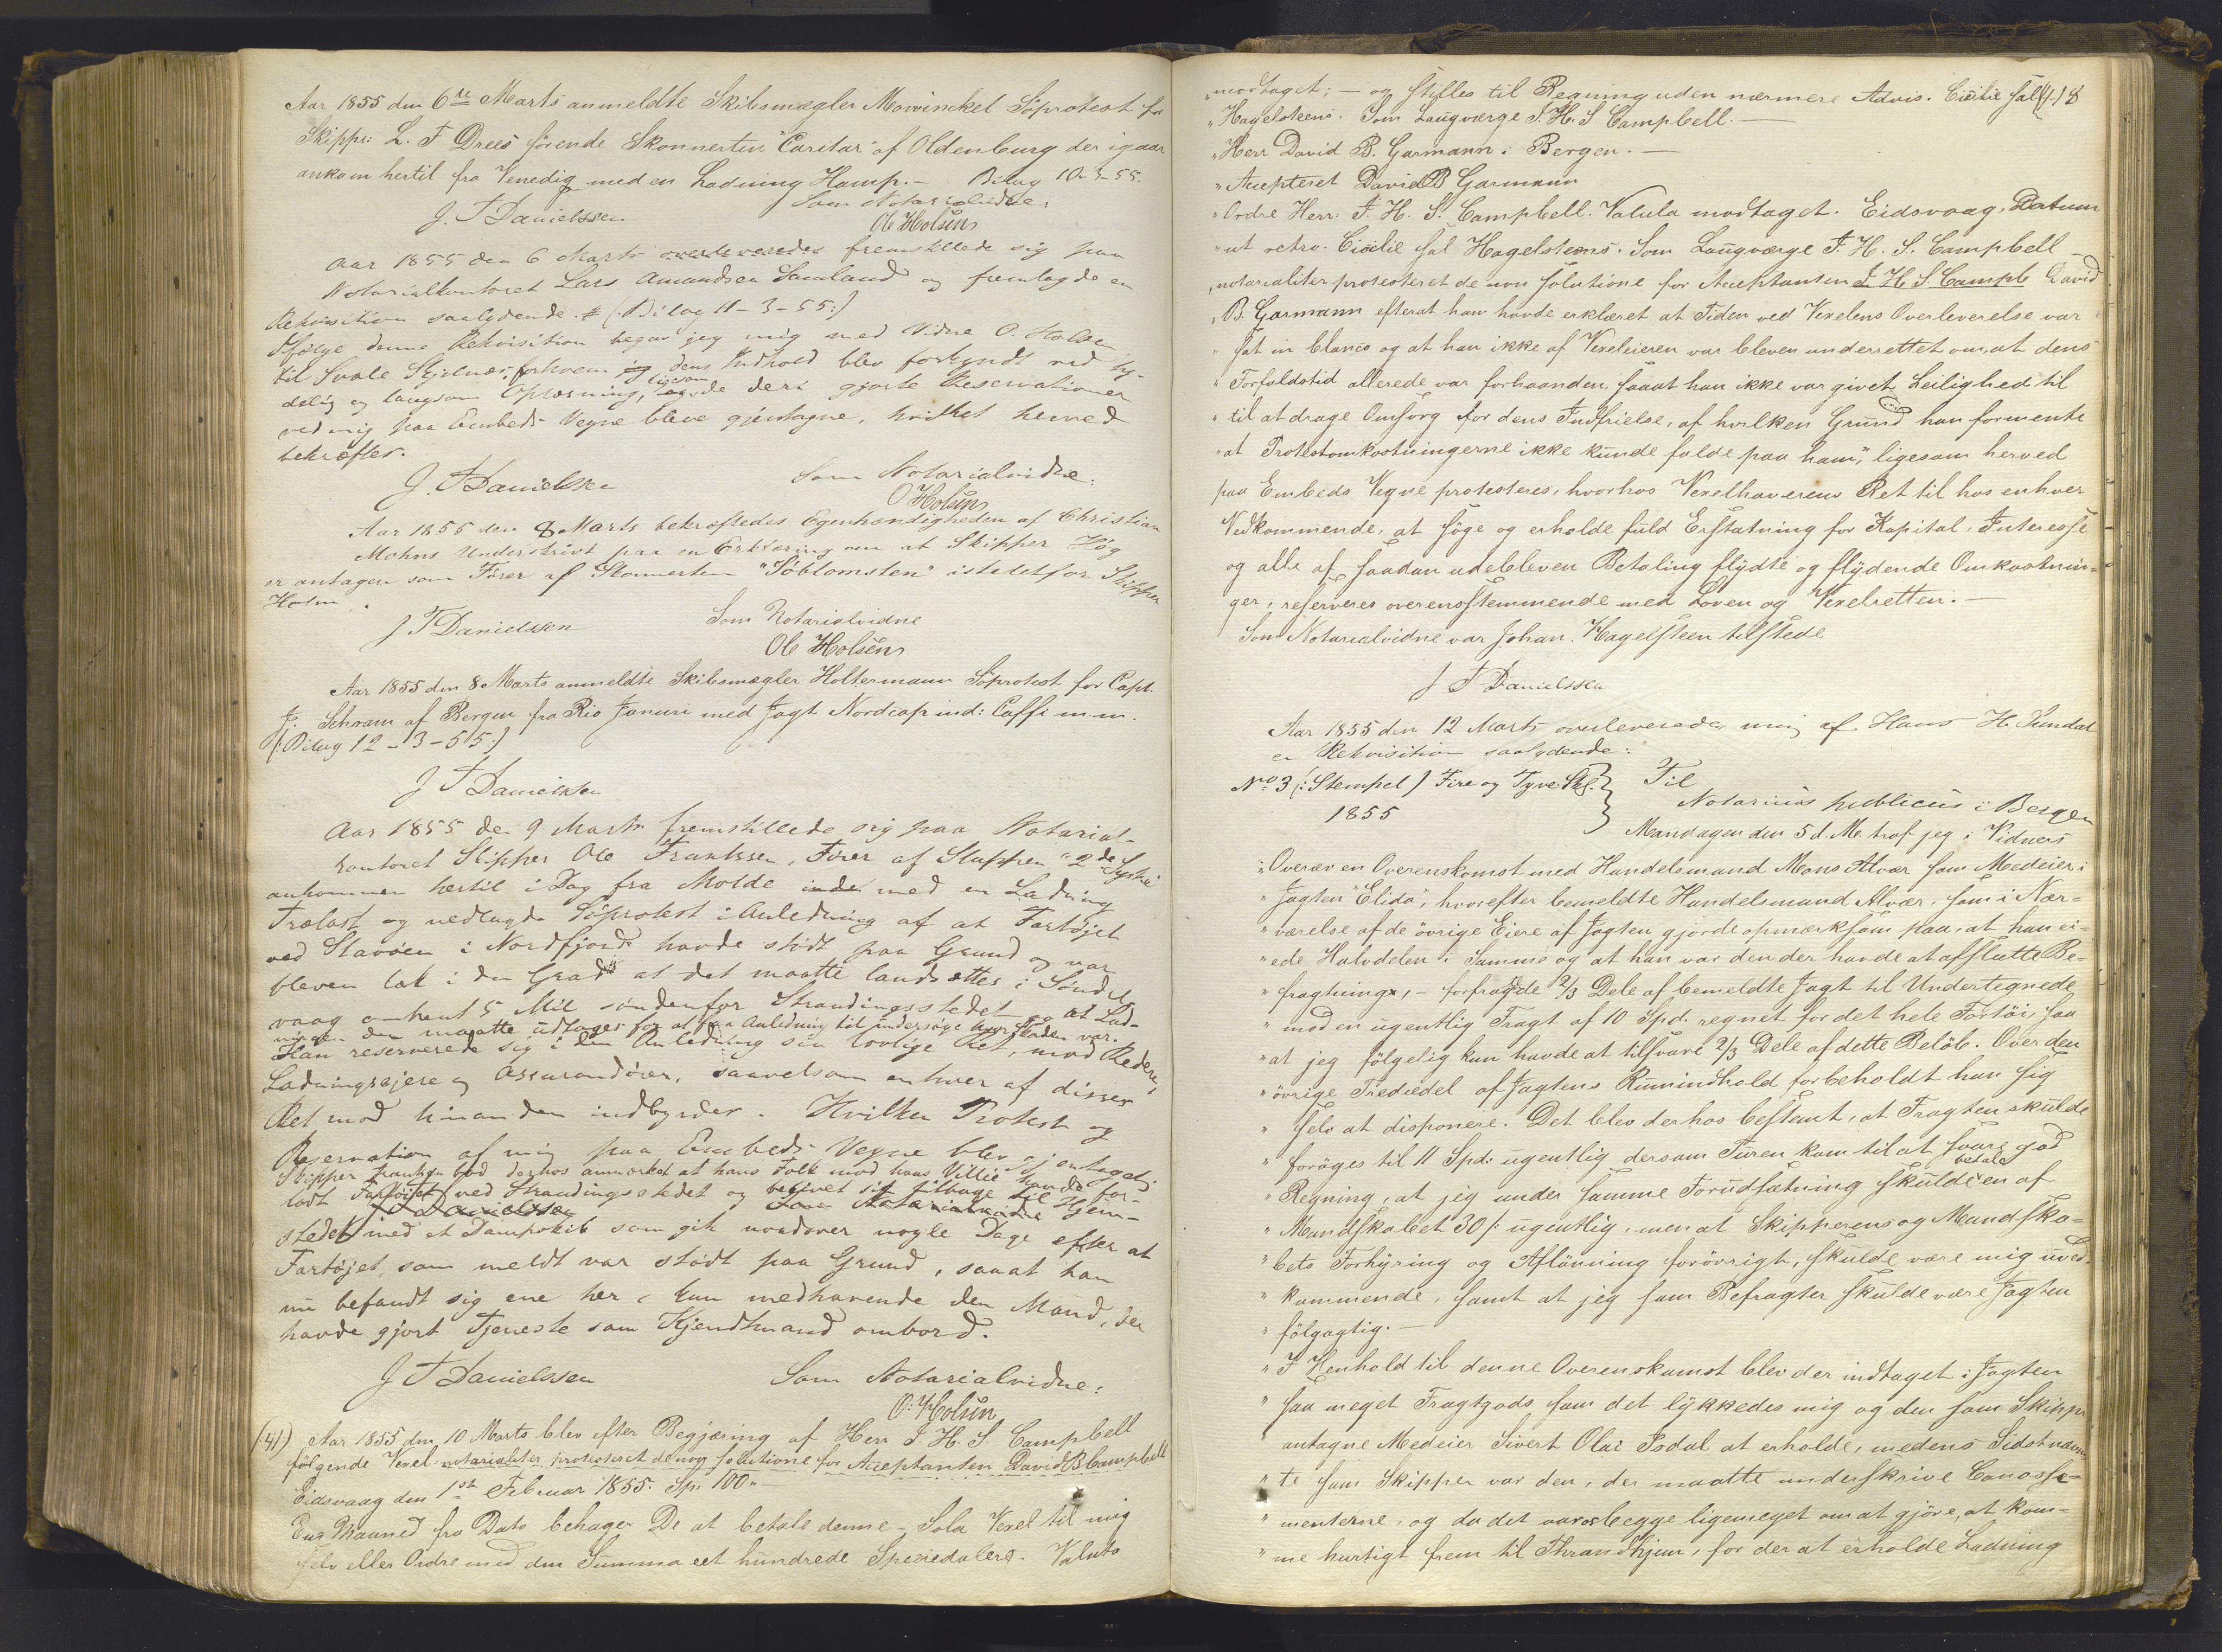 Aar 1855 den 6te Marts anmeldte Skibsmægler Mowinckel Söprotest for
Skipper L. F Drees förende Skonnerten "Caritas" af Oldenburg der igaar
ankom hertil fra Venedig med en Ladning Hamp. — Bilag 10-3-55.
Som Notarialvidne:
J. F Danielssen
Ol Holsen
Aar 1855 den 6 Marts overleveredes fremstillede sig paa
Notarialkontoret Lars Amundsen Samland og fremlagde en
Rekvisition saalydende. # (: Bilag 11-3-55:)
Ifölge denne Rekvisition begav jeg mig med Vidne O. Holsen
til Svale Skjelnes, forhvem jeg dens Indhold blev forkyndt ved ty-
delig og langsom Oplæsning, ligesom og de deri gjorte Reservationer
ved mig paa Embeds Vegne bleve gjentagne, hvilket herved
bekræftes.
J. F Danielssen
Som Notarialvidne:
O Holsen
Aar 1855 den 8 Marts bekræftedes Egenhændigheden af Christian
Mohns Underskrivt paa en Erklæring om at Skipper Hög
er antagen som Förer af Skonnerten "Söblomsten" istedetfor Skipper
Holm.
J F Danielssen
Som Notarialvidne
Ol Holsen
Aar 1855 den 8 Marts anmeldte Skibsmægler Holtermann Söprotest for Capt.
J. Schram af Bergen fra Rio Januri med Jagt Nordcap ind: Caffe m. m.
(: Bilag 12-3-55:)
J F Danielssen
Aar 1855 den 9 Marts fremstillede sig paa Notarial-
kontoret Skipper Ole Frantssen, Förer af Sluppen "2de Sydski
ankommen hertil i Dag fra Molde inde med en Ladning
Trælast og nedlagde Söprotest i Anledning af at Fartöjet
ved Stavöen i Nordfjord havde stödt paa Grund og var
bleven læk i den Grad at det maatte landsættes i
vaag omtrent 5 Mil söndenfor Strandingsstedet og at Lad-
ningen der maatte udtages for at faa Anledning til undersöge hvor Skaden var.
Han reserverede sig i den Anledning sin lovlige Ret, mod Redere,
Ladningsejere og Assurandörer, saavelsom enhver af disses
Ret mod hinanden indbyrdes. Hvilken Protest og
Reservation af mig paa Embeds Vegne blev gjentaget.
Skipper Frantsen lod derhos anmærket at hans Folk mod hans Villie havde for-
ladt Fartöjet ved Strandingsstedet og begivet sig tilbage til Hjem-
J F Danielssen Som Notarialvidne
stedet med et Dampskib som gik nordover nogle Dage efter at
Fartöjet, som meldt var stödt paa Grund, saaat han
nu befandt sig ene her, kun medhavende den Mand, der
havde gjort Tjeneste som Kjendtmand ombord.
J F Danielssen
Som Notarialvidne:
O. Holsen
(41) Aar 1855 den 10 Marts blev efter Begjæring af Herr J. H. S. Campbell
fölgende Vexel: notarialiter protesteret de non solutione for Acceptanten David B Campbell
Eidsvaag den 1ste Februar 1855. Sp. 100 „ —
Een Maaned fra Dato behager De at betale denne Sola Vexel til mig
selv eller Ordre med den Summa eet hundrede Speciedalere. Valuta
„ modtaget; — og stilles til Regning uden nærmere Advis. Cicilie sal
418
„ Hagelsteens. Som Laugværge J. H. S Campbell. —
„ Herr David B. Garmann i Bergen. —
„ Accepteret David B Garmann
„ Ordre Herr: J. H. S. Campbell. Valuta modtaget. Eidsvaag, Datum
„ ut retro. Cicilie sal Hagelsteens. Som Laugværge J. H. S. Campbell
„ notarialiter protesteret de non solutione for Acceptanten J. H. S. Campb David
„ B. Garmann efterat han havde erklæret at Tiden ved Vexelens Overleverelse var
„ sat in blanco og at han ikke af Vexeleieren var bleven underrettet om, at dens
„ Forfaldstid allerede var forhaanden, saaat han ikke var givet Leilighed til
„ til at drage Omsorg for dens Indfrielse, af hvilken Grund han formente
„ at Protestomkostningerne ikke kunde falde paa ham," ligesom herved
paa Embeds Vegne protesteres, hvorhos Vexelhaverens Ret til hos enhver
Vedkommende, at söge og erholde fuld Erstatning for Kapital, Interesse
og alle af saadan udebleven Betaling flydte og flydende Omkostnin-
ger, reserveres overensstemmende med Loven og Vexelretten. —
Som Notarialvidne var Johan Hagelsteen tilstede
J F Danielssen
Aar 1855 den 12 Marts overleveredes mig af Hans H. Sundal
en Rekvisition saalydende:
No 3 (: Stempel) Fire og Tyve Sk. } Til
1855
Notarius publicus i Bergen
Mandagen den 5 d. M. traf jeg i Vidners
„ Overær en Overenskomst med Handelsmand Mons Alvær som Medeier i
„ Jagten "Elida", hvorefter bemeldte Handelsmand Alvær, som i Nær-
„ værelse af de övrige Eiere af Jagten gjorde opmærksom paa, at han ei-
„ ede Halvdelen i Samme og at han var den der havde at afslutte Be-
„ fragtninge, — forfragtede 2/3 Dele af bemeldte Jagt til Undertegnede
„ mod en ugentlig Fragt af 10 Spd. regnet for det hele Fartöi, saa
„ at jeg fölgelig kun havde at tilsvare 2/3 Dele af dette Belöb. Over den
„ övrige Trediedel af Jagtens Rumindhold forbeholdt han sig
„ selv at disponere. Det blev derhos bestemt, at Fragten skulde
„ foröges til 11 Spd: ugentlig dersom Turen kom til at svare god
„ Regning, at jeg under samme Forudsætning skulde betale en af
„ Mandskabet 30 ß ugentlig, men at Skipperens og Mandska-
„ bets Forhyring og Aflönning forövrigt, skulde være mig uved-
„ kommende, samt at jeg som Befragter skulde være Jagten
„ fölgagtig. —
„ I Henhold til denne Overenskomst blev der indtaget i Jagten
„ saa meget Fragtgods som det lykkedes mig og den som Skipper
„ antagne Medeier Sivert Olai Isdal at erholde, medens Sidstnævn-
„ te som Skipper var den, der maatte underskrive Conosse-
„ menterne, og da det var os begge ligemeget om at gjöre, at kom-
„ me hurtigt frem til Thrandhjem, for der at erholde Ladning